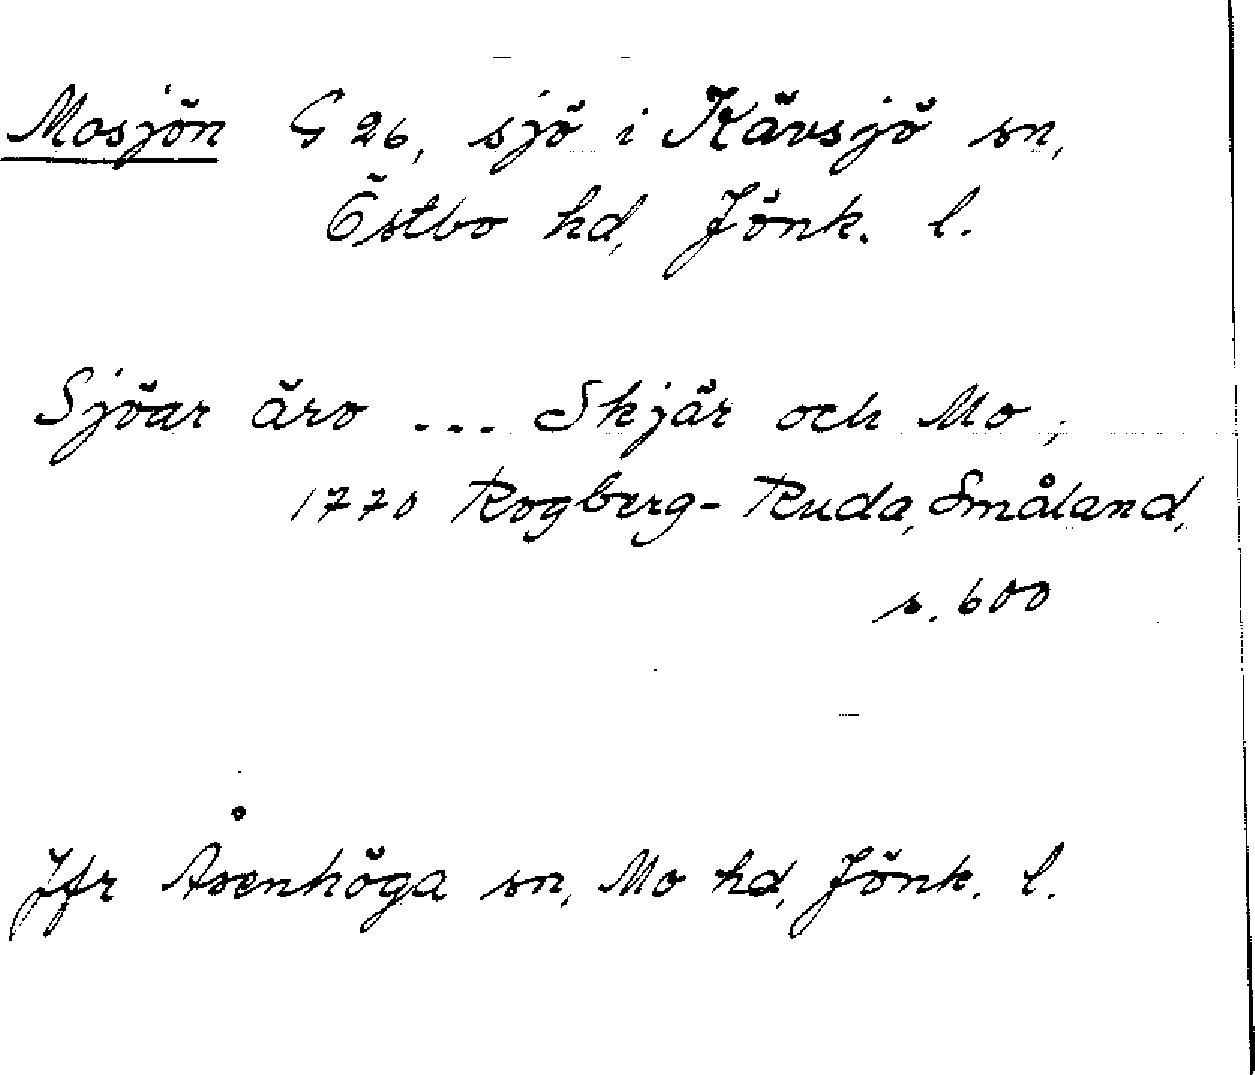 Mosjön G 26, sjö i Kävsjö sn,
Östbo hd, Jönk. l.
Sjöar äro ... Skjär och Mo,
1770 Rogberg-Ruda, Småland,
s. 600
Jfr Åsenhöga sn, Mo hd, Jönk. l.